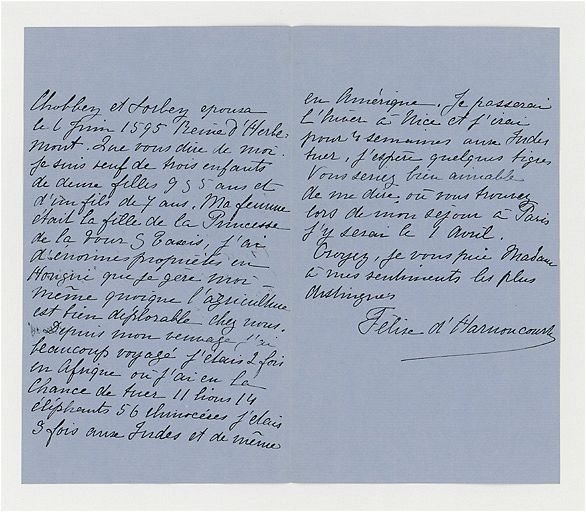 Chobbey et Sorbey epousa
le 6 Juin 1595 Reine d'Herbe-
mont. Que vous dire de moi.
Je suis veuf de trois enfants
de deux filles 9 & 5 ans et
d'un fils de 7 ans. Ma femme
était la fille de la Princesse
de la Tour & Tassis, j'ai
d'énormes propriétés en
Hongrie que je gère moi-
même quoique l'agriculture
est bien deplorable chez nous.
Depuis mon veuvage j'ai
beaucoup voyagé j'étais 2 fois
en Afrique où j'ai eu la
Chance de tuer 11 lions 14
éléphants 56 rhinocéros j'étais
3 fois aux Indes et de même
en Amérique. Je passerai
l'hiver à Nice et j'irai
pour 4 semaines aux Indes
tuer, j'espère quelques tigres
Vous seriez bien aimable
de me dire où vous trouvez
lors de mon sejour à Paris
j'y serai le 1 Avril.
Croyez, je vous prie Madame
à mes sentiments les plus
distingués
Félix d'Harnoncourt